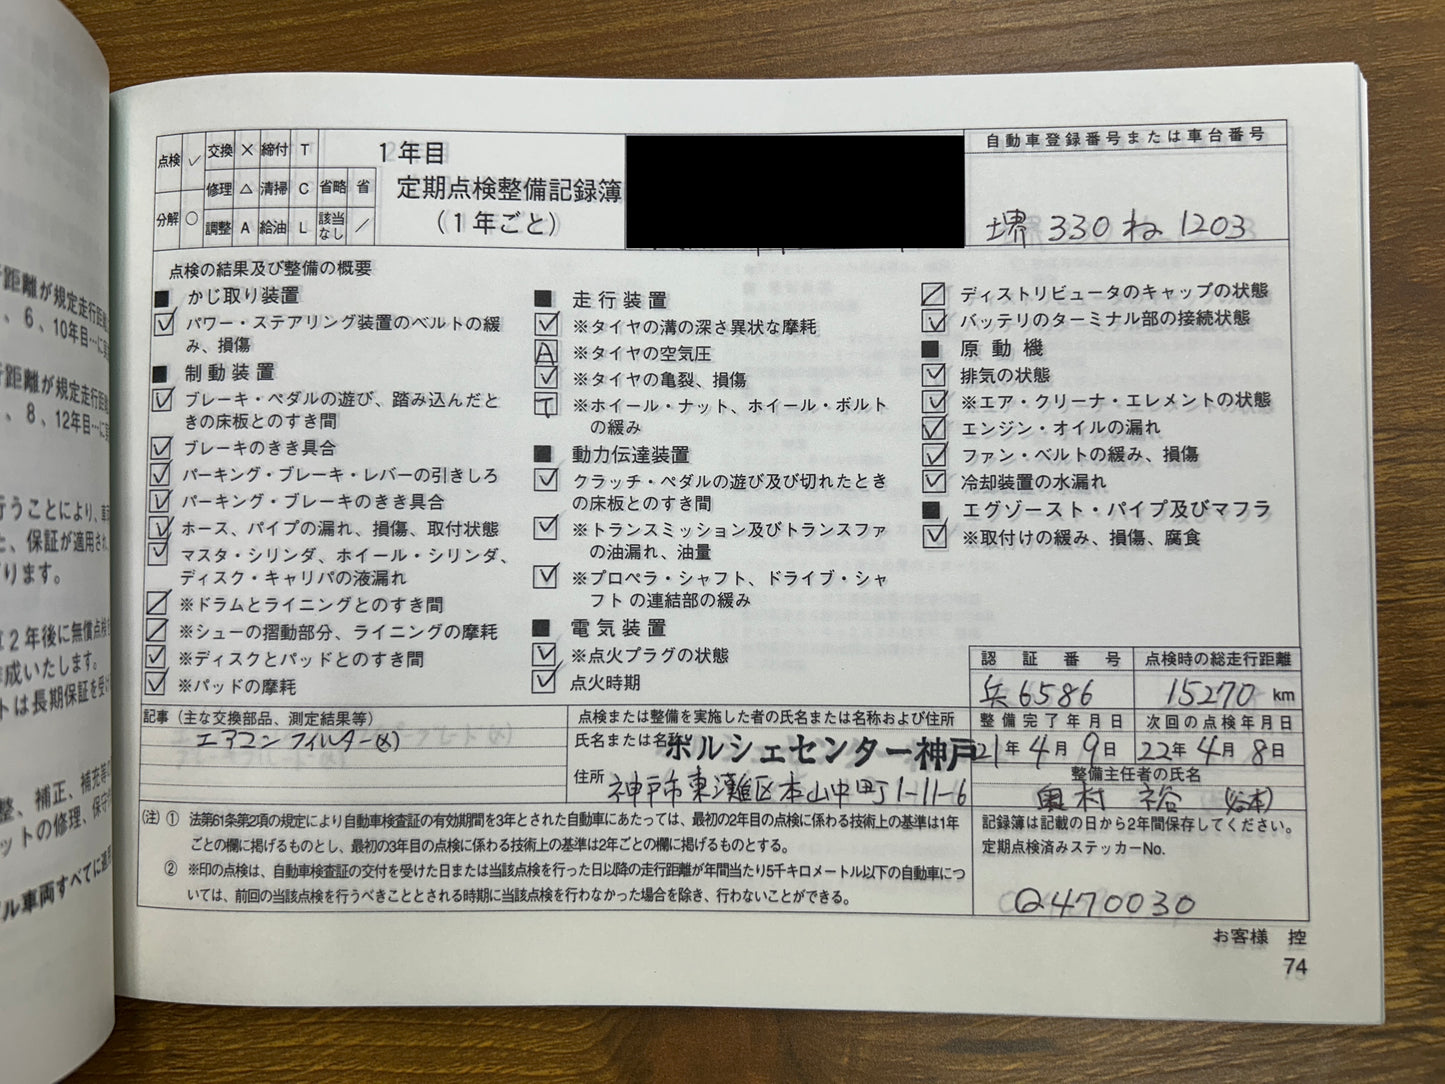 距離が規定走行距離
、6、10年目…に実
行距離が規定走行距離
、8、12年目…に実
行うことにより、
た、保証が適用され
ります。
は2年後に無償点検
成いたします。
トは長期保証を受け
整、補正、補充等の
ットの修理、保守
ル車両すべてに適用
点検 ✓ 交換 × 締付 T
修理 △ 清掃 C 省略 省
分解 ○ 調整 A 給油 L 該当なし ／
1年目
定期点検整備記録簿
（1年ごと）
自動車登録番号または車台番号
堺 330 ね 1203
点検の結果及び整備の概要
■ かじ取り装置
✓ パワー・ステアリング装置のベルトの緩
み、損傷
■ 制動装置
✓ ブレーキ・ペダルの遊び、踏み込んだと
きの床板とのすき間
✓ ブレーキのきき具合
✓ パーキング・ブレーキ・レバーの引きしろ
✓ パーキング・ブレーキのきき具合
✓ ホース、パイプの漏れ、損傷、取付状態
✓ マスタ・シリンダ、ホイール・シリンダ、
ディスク・キャリパの液漏れ
／ ※ドラムとライニングとのすき間
／ ※シューの摺動部分、ライニングの摩耗
✓ ※ディスクとパッドとのすき間
✓ ※パッドの摩耗
■ 走行装置
✓ ※タイヤの溝の深さ異状な摩耗
A ※タイヤの空気圧
✓ ※タイヤの亀裂、損傷
T ※ホイール・ナット、ホイール・ボルト
の緩み
■ 動力伝達装置
✓ クラッチ・ペダルの遊び及び切れたとき
の床板とのすき間
✓ ※トランスミッション及びトランスファ
の油漏れ、油量
✓ ※プロペラ・シャフト、ドライブ・シャ
フトの連結部の緩み
■ 電気装置
✓ ※点火プラグの状態
✓ 点火時期
／ ディストリビュータのキャップの状態
✓ バッテリのターミナル部の接続状態
■ 原動機
✓ 排気の状態
✓ ※エア・クリーナ・エレメントの状態
✓ エンジン・オイルの漏れ
✓ ファン・ベルトの緩み、損傷
✓ 冷却装置の水漏れ
■ エグゾースト・パイプ及びマフラ
✓ ※取付けの緩み、損傷、腐食
認証番号 点検時の総走行距離
兵6586 15270 km
整備完了年月日 次回の点検年月日
21年4月9日 22年4月8日
整備主任者の氏名
奥村 裕 (谷本)
記事（主な交換部品、測定結果等）
エアコンフィルター(x)
点検または整備を実施した者の氏名または名称および住所
氏名または名称 ポルシェセンター神戸
住所 神戸市東灘区本山中町1-11-6
（注）① 法第61条第2項の規定により自動車検査証の有効期間を3年とされた自動車にあたっては、最初の2年目の点検に係わる技術上の基準は1年
ごとの欄に掲げるものとし、最初の3年目の点検に係わる技術上の基準は2年ごとの欄に掲げるものとする。
② ※印の点検は、自動車検査証の交付を受けた日または当該点検を行った日以降の走行距離が年間当たり5千キロメートル以下の自動車につ
いては、前回の当該点検を行うべきこととされる時期に当該点検を行わなかった場合を除き、行わないことができる。
記録簿は記載の日から2年間保存してください。
定期点検済みステッカーNo.
Q470030
お客様 控
74